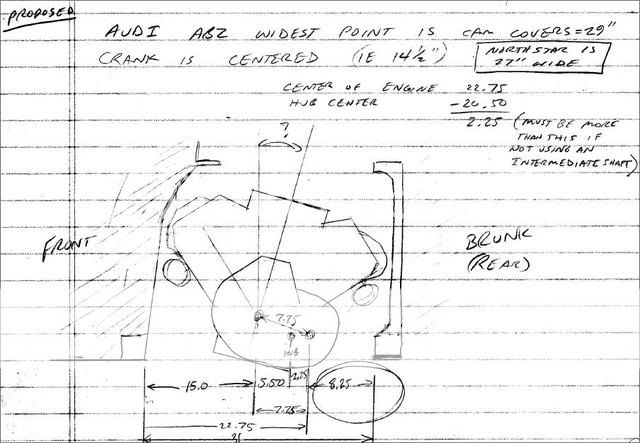 PROPOSED
AUDI ABZ WIDEST POINT IS CAM COVERS = 29"
CRANK IS CENTERED (IE 14½")
NORTHSTAR IS
27" WIDE
CENTER OF ENGINE 22.75
HUB CENTER -20.50
2.25 (MUST BE MORE
THAN THIS IF
NOT USING AN
INTERMEDIATE SHAFT)
?
FRONT
BRUNK
(REAR)
7.75
HUB
15.0 5.50 2.25 8.25
7.75
22.75
31